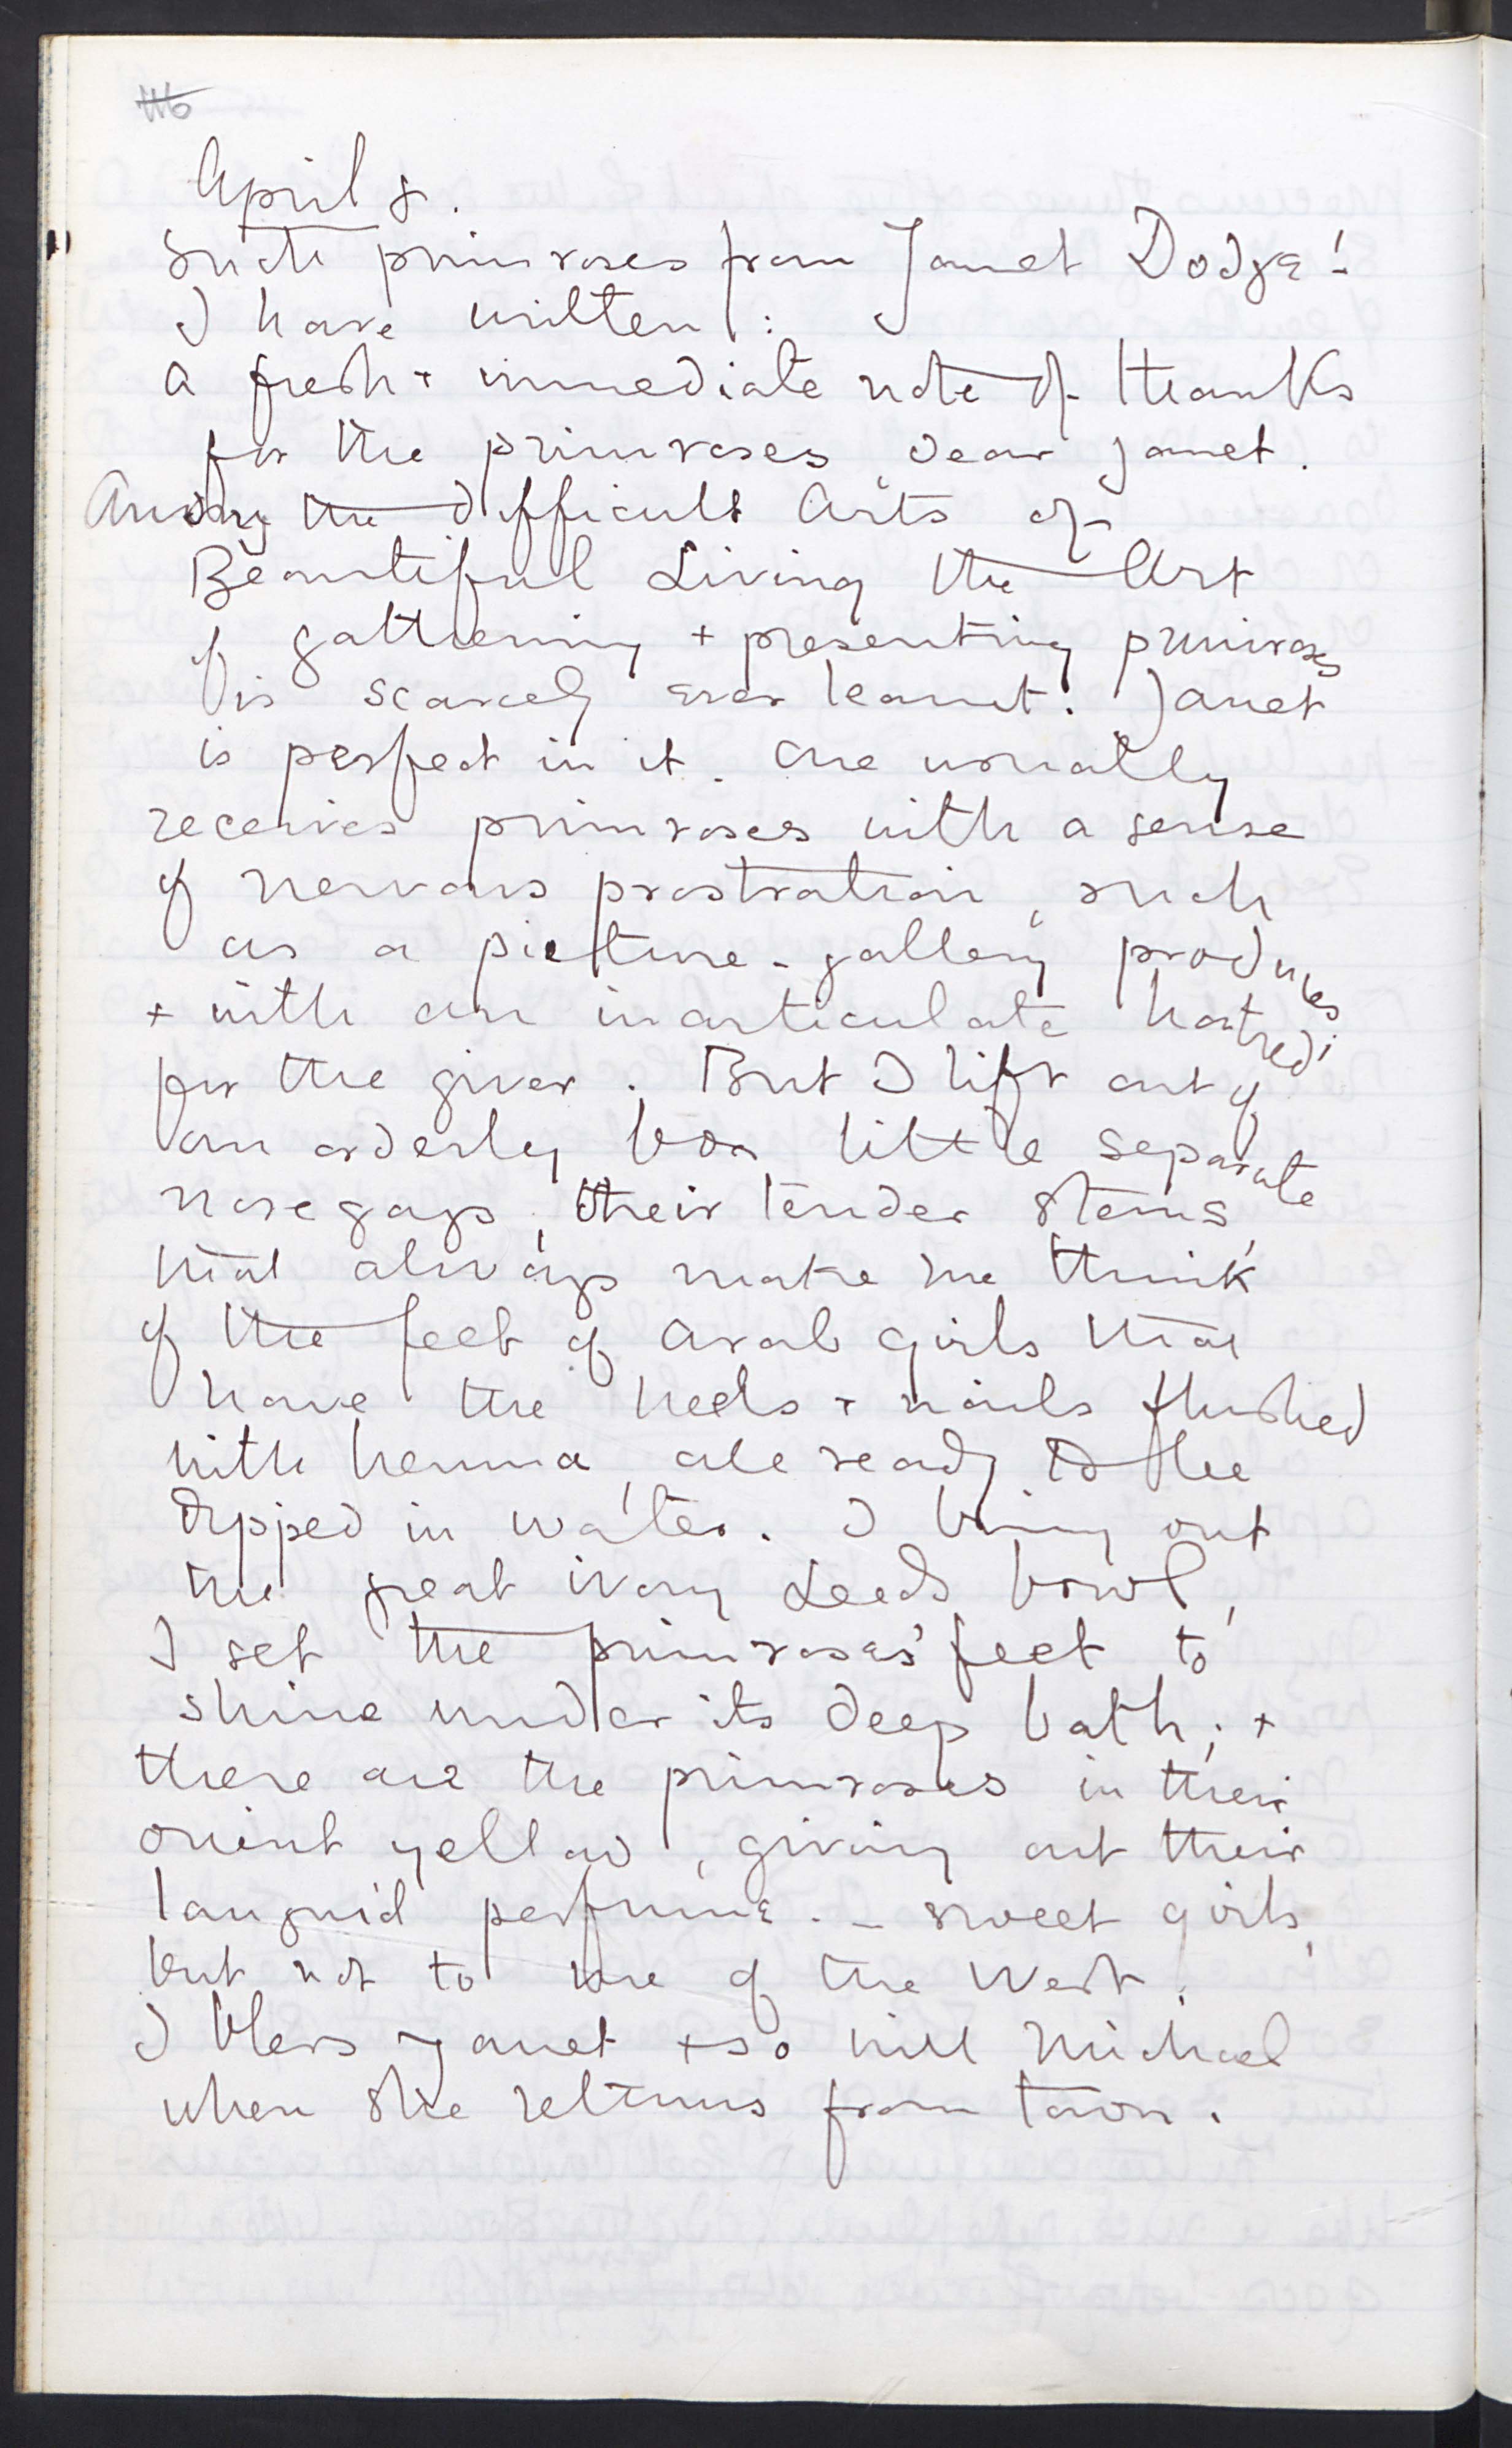 April 8.
Such primroses from Janet Dodge!
I have written:
A fresh + immediate note of thanks
for the primroses dear Janet.
Among the difficult Arts of
Beautiful Living the Art
of gathering + presenting primroses
is scarcely ever learnt. Janet
is perfect in it. One usually
receives primroses with a sense
of nervous prostration, such
as a picture-gallery produces
+ with an inarticulate hatred
for the giver. But I lift out of
an orderly box little separate
nosegays, their tender stems,
that always make me think
of the feet of Arab girls that
have the heels + nails flushed
with henna, all ready to be
dipped in water. I bring out
the great ivory Leeds bowl,
I set the primroses' feet to
shine under its deep bath; +
there are the primroses in their
orient yellow, giving out their
languid perfume. - sweet girls,
but not to me of the West.
I bless Janet + so will Michael
when she returns from town.